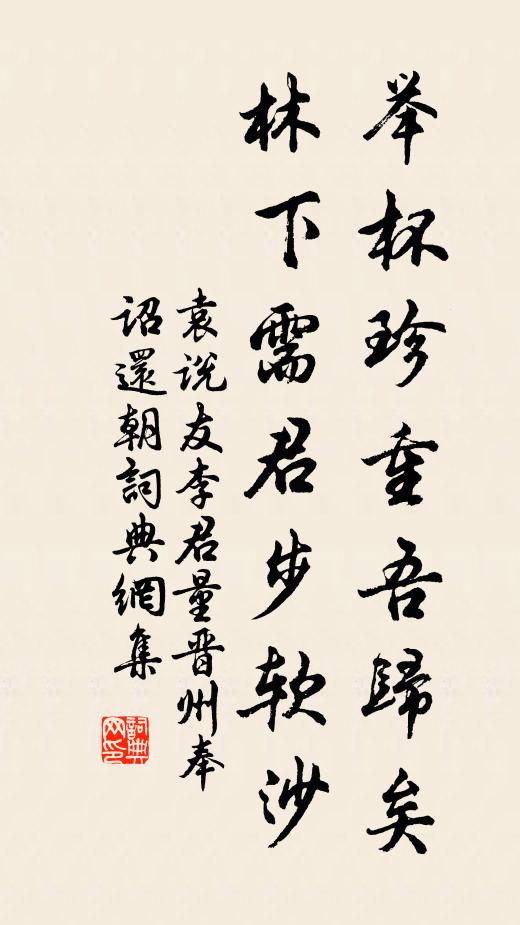 举杯珍重吾歸矣
林下需君步软沙
袁说友李君量晋州奉
诏還朝詞典網集
詞典网印